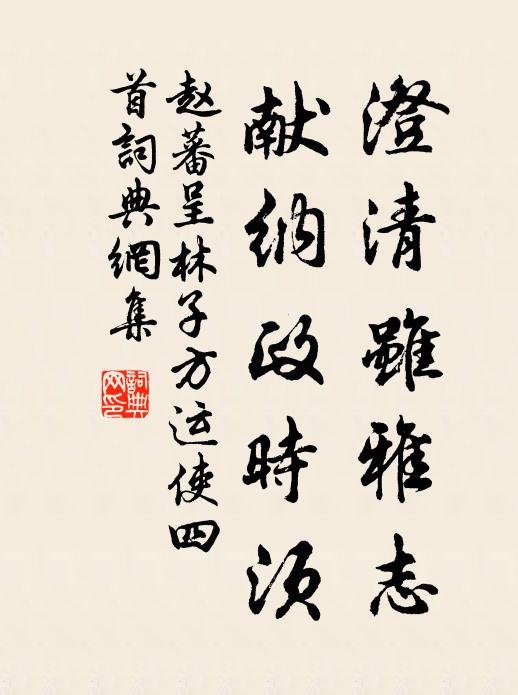 澄清雖雅志
献纳政時须
赵蕃呈林子方运使四
首詞典網集
詞典
网印